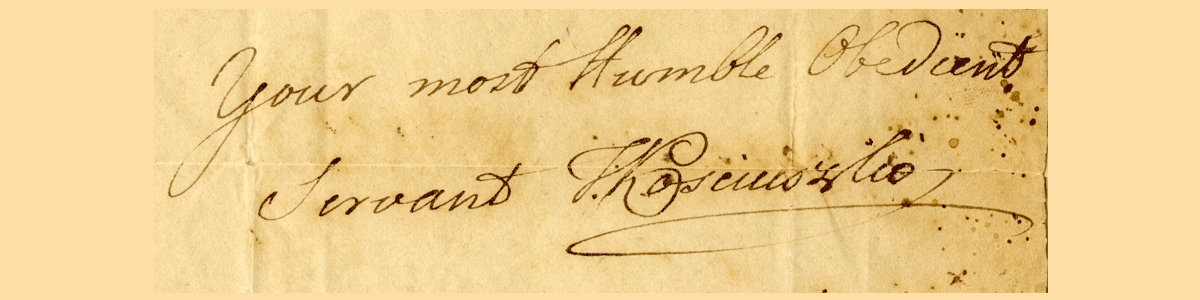 Your most Humble Obedient
Servant T. Kosciuszko